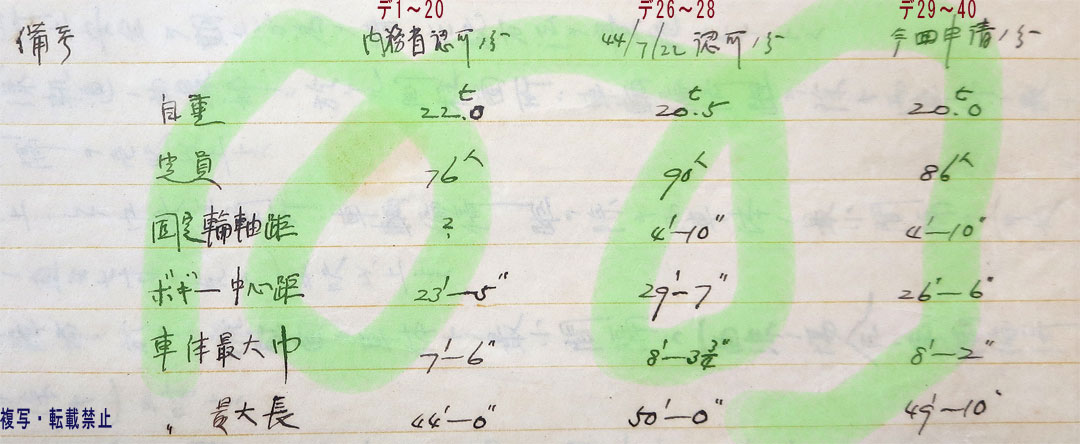 デ1~20 デ26~28 デ29~40
備考 内務省認可ノ分 44/7/22 認可ノ分 今回申請ノ分
自重 22.0t 20.5t 20.0t
定員 76人 90人 86人
固定輪軸距 ? 4'-10" 4'-10"
ボギー中心距 23'-5" 29'-7" 26'-6"
車体最大巾 7'-6" 8'-3¾" 8'-2"
〃 最大長 44'-0" 50'-0" 49'-10"
複写・転載禁止